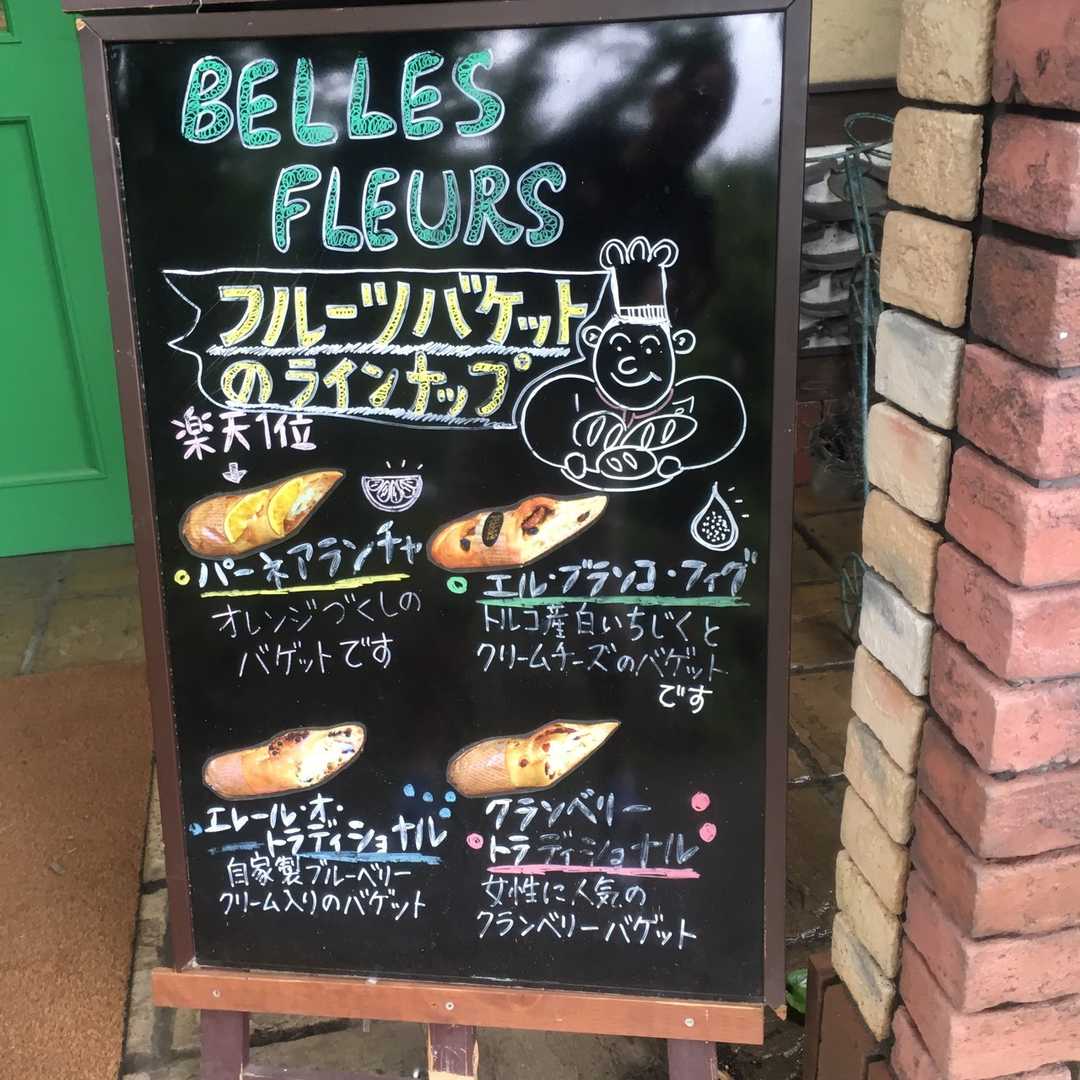 BELLES
FLEURS
フルーツバゲット
のラインナップ
楽天1位
パーネアランチャ
オレンジづくしの
バゲットです
エル・ブランコ・フィグ
トルコ産白いちじくと
クリームチーズのバゲット
です
エレール・オ・
トラディショナル
自家製ブルーベリー
クリーム入りのバゲット
クランベリー
トラディショナル
女性に人気の
クランベリーバゲット